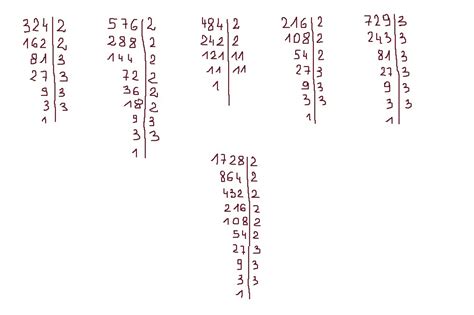 324|2
162|2
81|3
27|3
9|3
3|3
1|
576|2
288|2
144|2
72|2
36|2
18|2
9|3
3|3
1|
484|2
242|2
121|11
11|11
1|
216|2
108|2
54|2
27|3
9|3
3|3
1|
729|3
243|3
81|3
27|3
9|3
3|3
1|
1728|2
864|2
432|2
216|2
108|2
54|2
27|3
9|3
3|3
1|